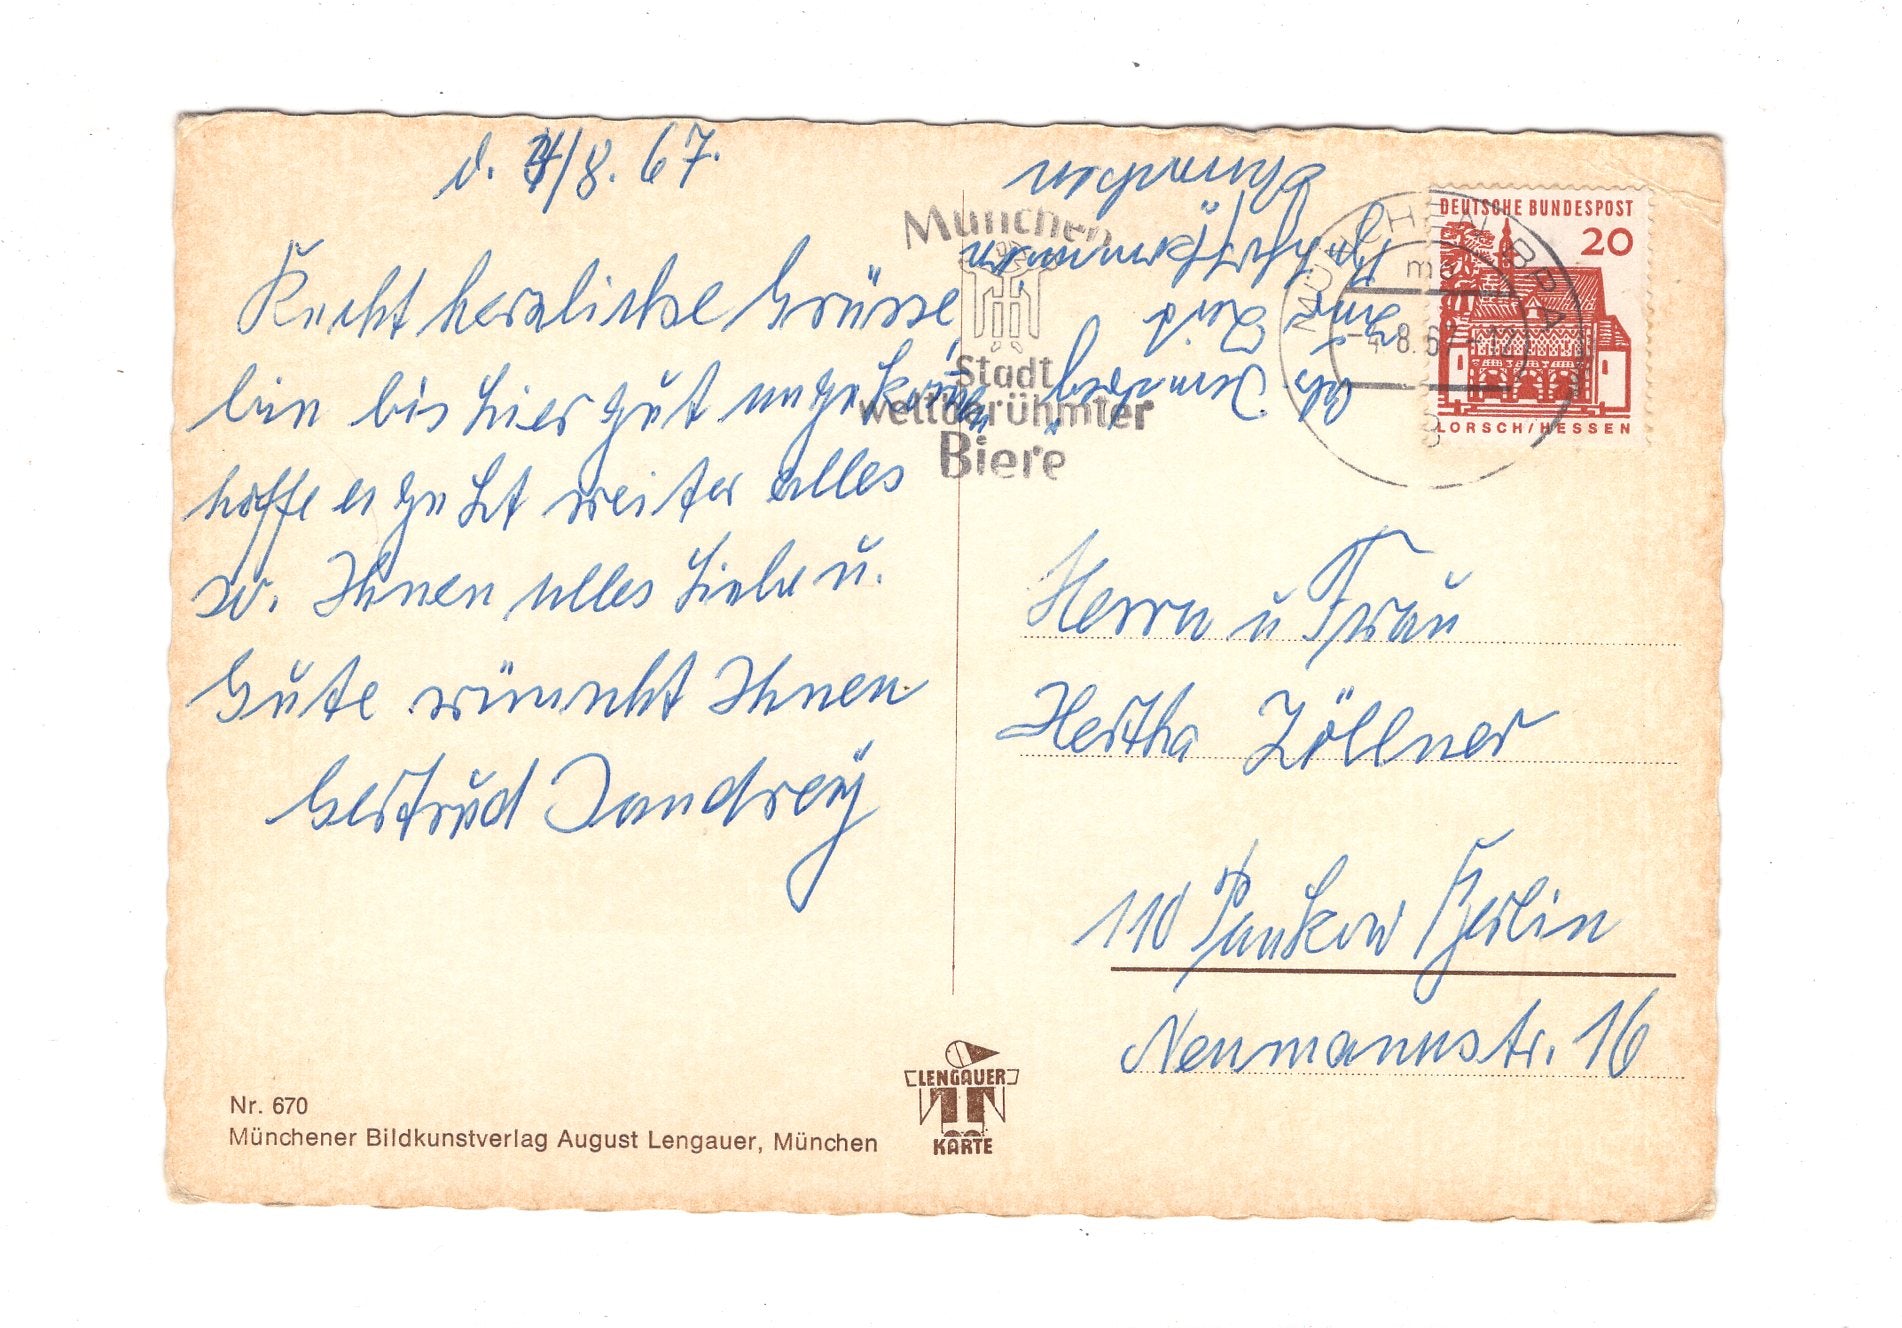 d. 4/8. 67.
Recht herzliche Grüsse
bin bis hier gut angekommen
hoffe es geht weiter alles
so. Ihnen alles Liebe u.
Gute wünscht Ihnen
Gertrud Jandrey
München
Stadt
weltberühmter
Biere
MÜNCHEN BPA
-4.8.67-12
DEUTSCHE BUNDESPOST
20
LORSCH/HESSEN
Herrn u Frau
Hertha Zöllner
110 Pankow Berlin
Neumannstr. 16
Nr. 670
Münchener Bildkunstverlag August Lengauer, München
LENGAUER
KARTE